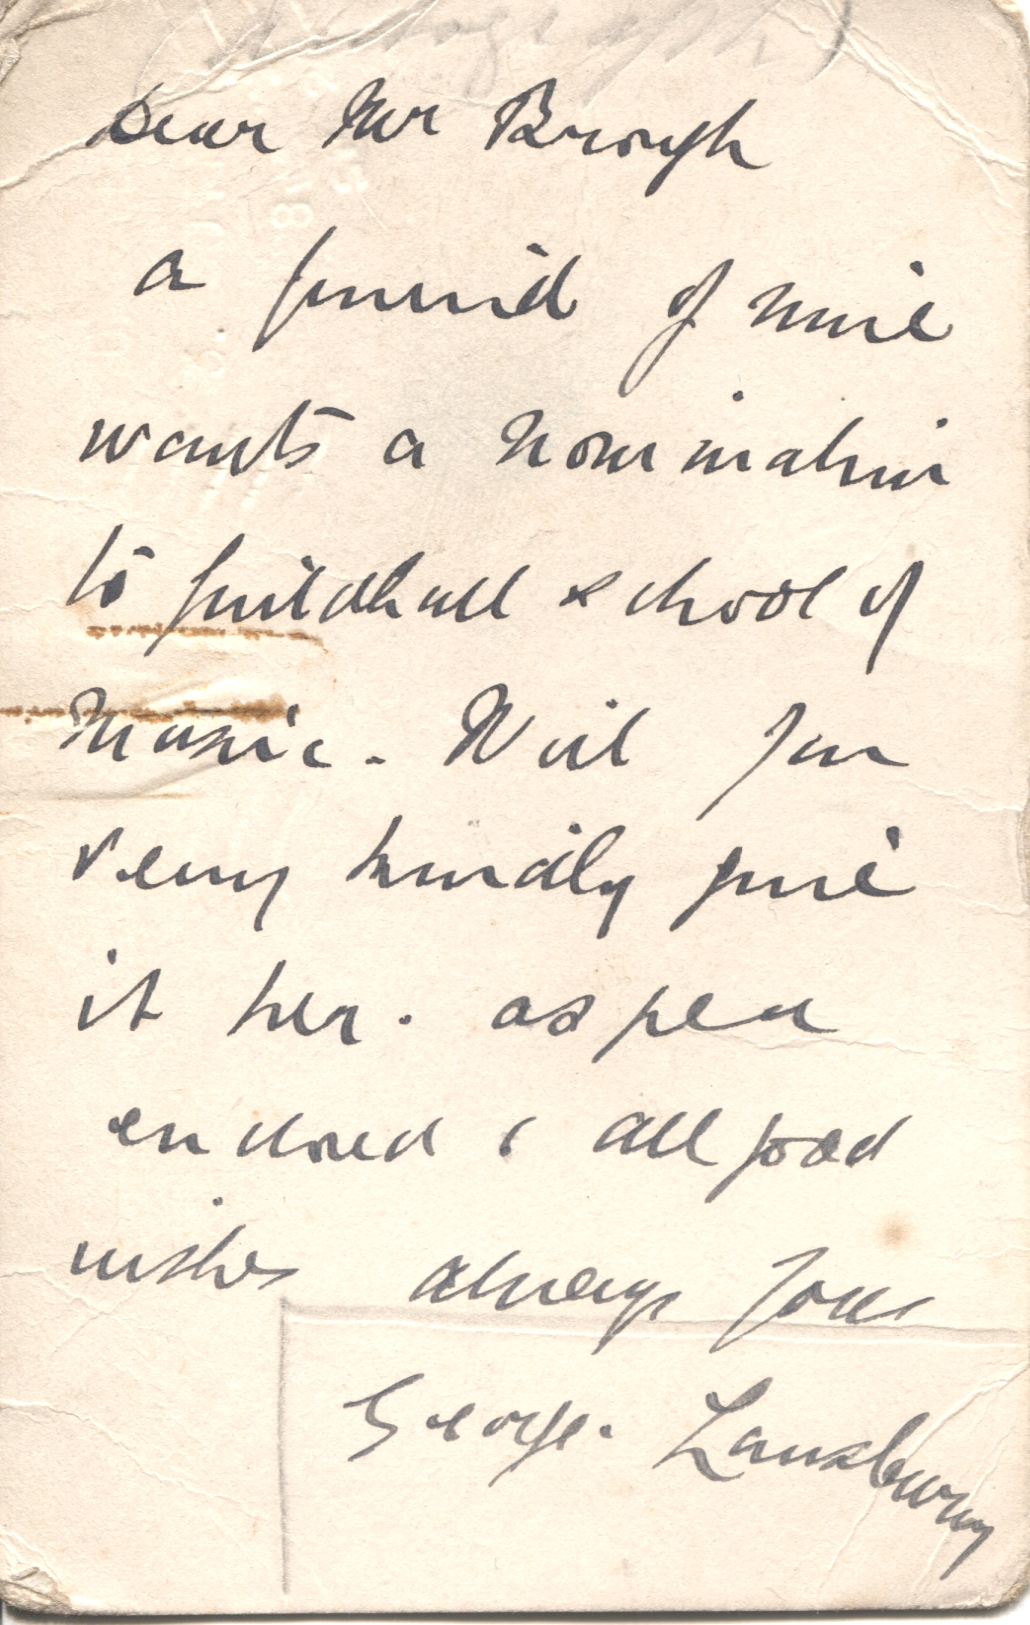 (Autograph)
Dear Mr Brough
a friend of mine
wants a nomination
to Guildhall school of
Music. Will you
very kindly give
it her. as per
enclosed & all good
wishes always yours
George Lansbury